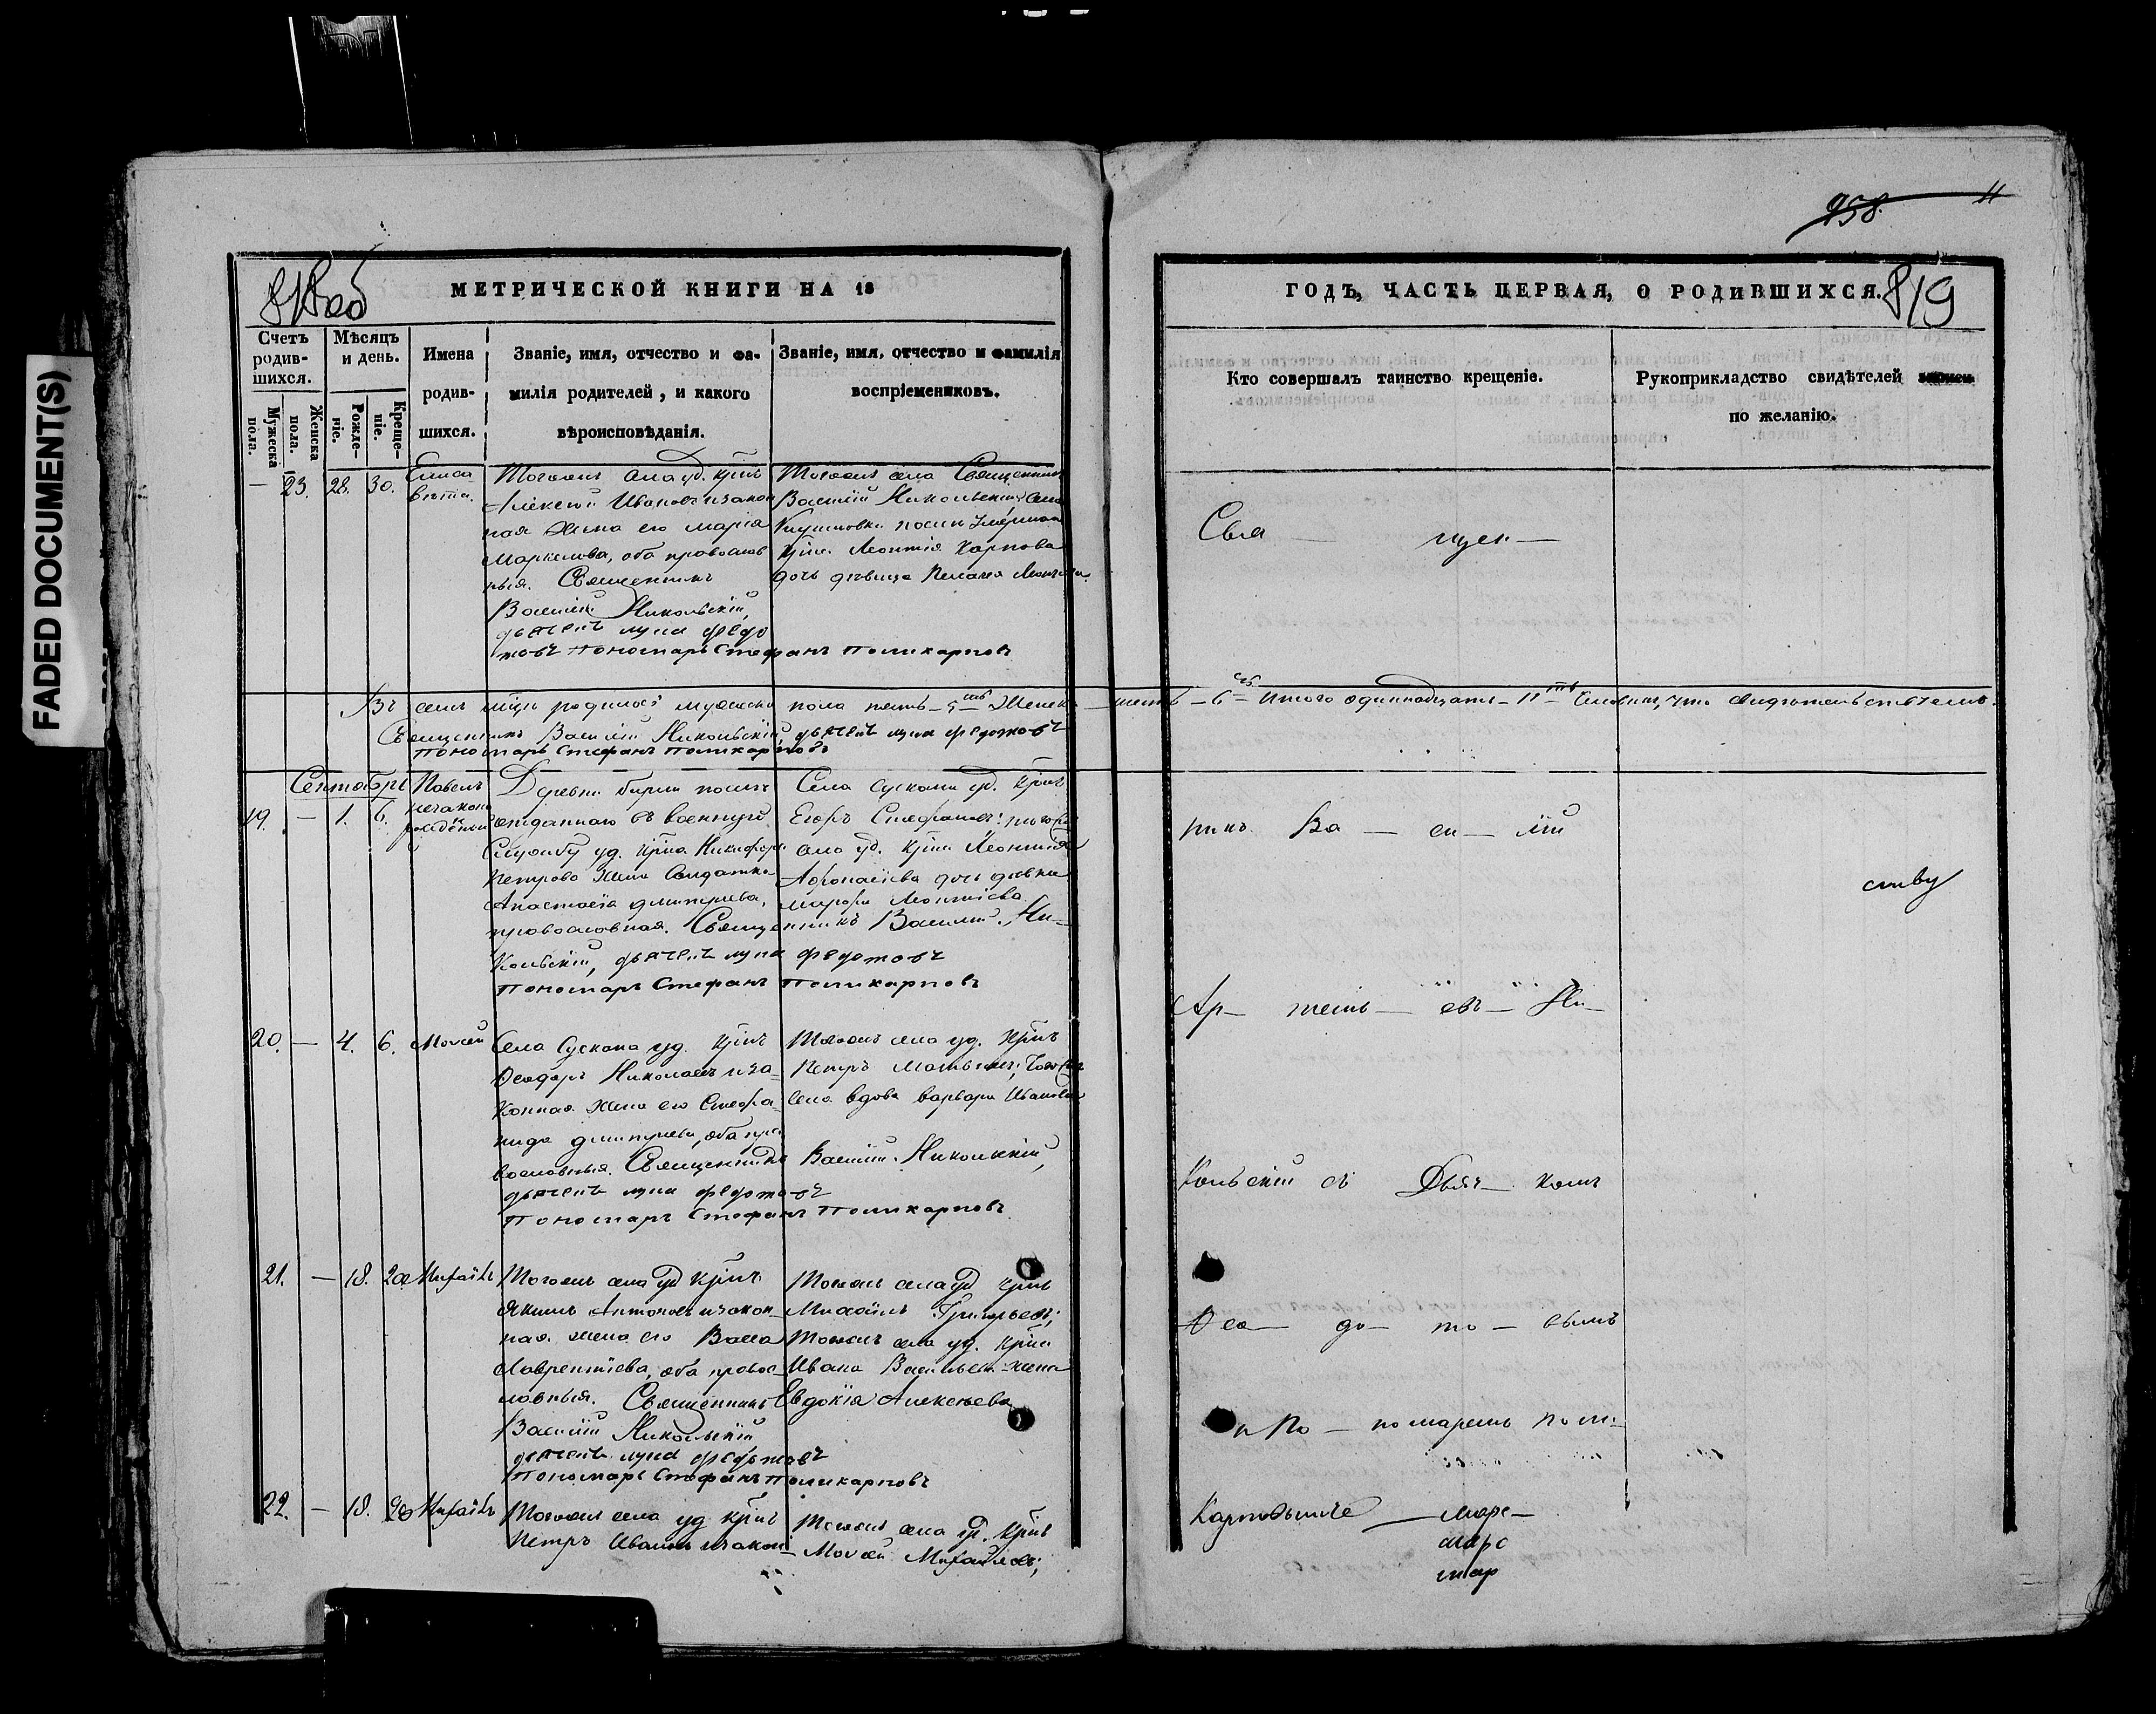 FADED DOCUMENT(S)
958. 11
818 об
МЕТРИЧЕСКОЙ КНИГИ НА 18
Счетъ родив-шихся.
Мужеска пола.
Женска пола.
Мѣсяцъ и день.
Рожде-ніе.
Креще-ніе.
Имена родив-шихся.
Званіе, имя, отчество и фа-
милія родителей, и какого
вѣроисповѣданія.
Званіе, имя, отчество и фамилія
воспріемниковъ.
— 23. 28. 30. Елиса
вѣта.
Тогожъ села уд. крн̃ъ
Алексѣй Ивановъ и закон
ная жена его Марія
Маркелова, оба православ
ныя. Священникъ
Василій Никольскій,
дьячекъ лупа федо
товъ
пономарь Стефанъ поликарповъ
Тогожъ села Священникъ
Василій Никольскій; села
крн̃а Леонтія Карпова
дочь дѣвица Пелагея Леонтіева.
Въ семъ мц̃ѣ родилось мужеска пола пять – 5ть Женска – шесть – 6ть Итого одинадцать – 11ть
Священникъ Василій Никольскій, дьячекъ лупа федотовъ
пономарь Стефанъ поликарповъ
Сентябрь
19. — 1. 6. Павелъ
незаконо
рожденый
Деревни
отданнаго въ военную
службу уд. крн̃на Никифора
Петрова жена Солдатка
Анастасія Дмитріева,
православная. Священникъ Василій Ни-
кольскій, дьячекъ лупа федотовъ
пономарь Стефанъ поликарповъ
Села Сускана уд. крн̃ъ
Егоръ Стефановъ;
села уд. крн̃а Леонтія
Афонасіева дочь дѣвка
Марфа Леонтіева
20. — 4. 6. Моисей
Села Сускана уд. крн̃ъ
Ѳеодоръ Николаевъ и за-
конная жена его Стефа-
нида Дмитріева, оба пра
вославныя. Священникъ Василій Никольскій,
дьячекъ лупа федотовъ
пономарь Стефанъ поликарповъ
Тогожъ села уд. крн̃ъ
Петръ Матвѣевъ; тогожъ
села вдова Варвара Иванова
21. — 18. 20 Михаилъ
Тогожъ села уд крн̃ъ
Якимъ Антоновъ и закон-
ная жена его Васса
Лаврентіева, оба правос-
лавныя. Священникъ
Василій Никольскій
дьячекъ лупа федотовъ
пономарь Стефанъ поликарповъ
Тогожъ села уд крн̃ъ
Михаилъ Григорьевъ;
Тогожъ села уд. крн̃а
Ивана Васильева жена
Евдокія Алексѣева
22. — 18. 20 Михаилъ
Тогожъ села уд крн̃ъ
Петръ Ивановъ и закон-
Тогожъ села уд. крн̃ъ
Моисей Михайловъ;
ГОДЪ, ЧАСТЬ ПЕРВАЯ, О РОДИВШИХСЯ.
819
Кто совершалъ таинство крещеніе.
Рукоприкладство свидѣтелей записи
по желанію.
Свя — щен —
никъ Ва — си — лій
ству
Ар — темь — евъ — Ни —
кольскій съ Дьяч — комъ
Ѳео — до — то — вымъ
и По — номаремъ Поли-
карповымъ